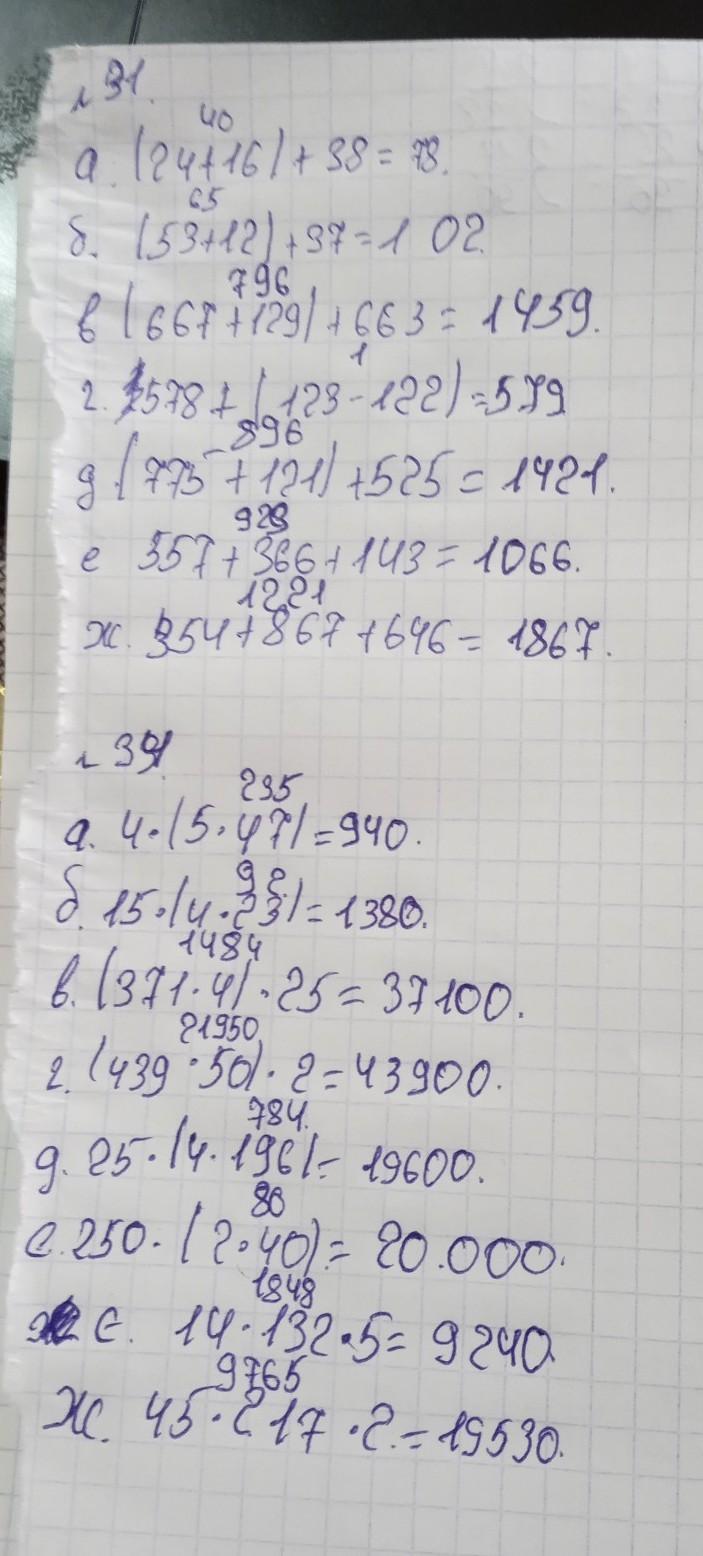 № 31.
40
а. (24+16)+38=78.
65
б. (53+12)+37=102.
796
в (667+129)+663=1459.
1
г. 578+(123-122)=579
896
д. (775+121)+525=1421.
923
е 557+366+143=1066.
1221
ж. 354+867+646=1867.
№ 34
235
а. 4·(5·47)=940.
92
б. 15·(4·23)=1380.
1484
в. (371·4)·25=37100.
21950
г. (439·50)·2=43900.
784.
д. 25·(4·196)=19600.
80
е. 250·(2·40)=20.000.
1848
е. 14·132·5=9240.
9765
Ж. 45·217·2.=19530.